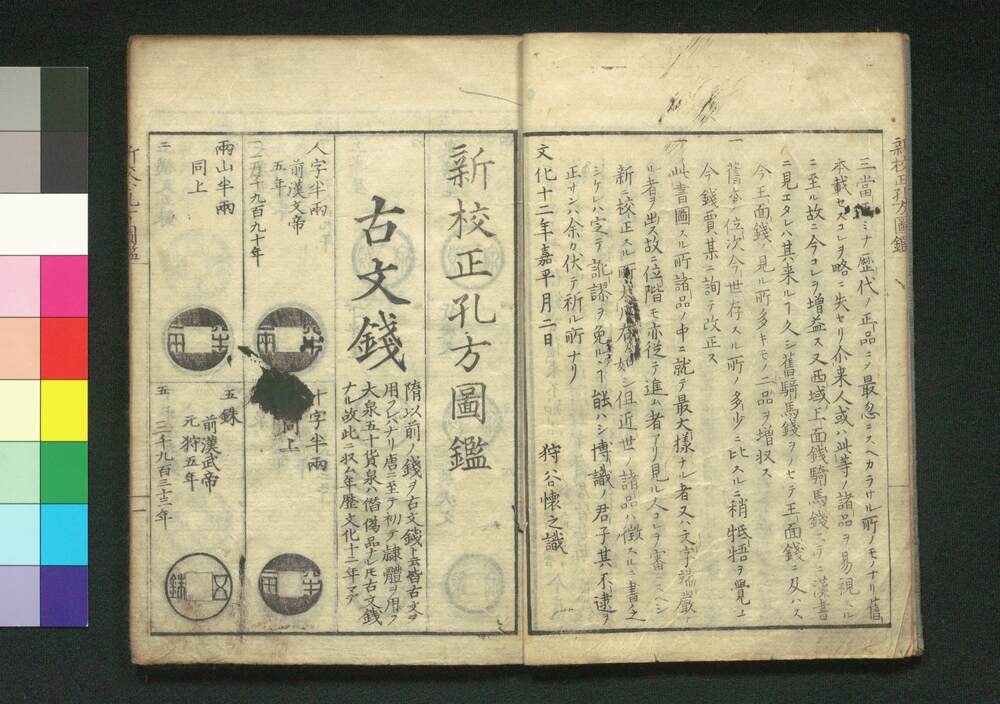 新校正孔方圖鑑
三當ミナ歴代ノ正品ニシ最忽ニスヘカラサル所ノモノナリ舊
本載セスコレヲ略ニ失セリ介来人或ハ此等ノ諸品ヲ易視スル
ニ至ル故ニ今コレヲ増益ス又西域上面錢騎馬錢ニテニ漢書
ニ見エタレハ其ハ来ルヿ久シ舊騎馬錢ヲノセテ王面錢ニ及ハス
今王面錢ノ見ル所多キモノ二品ヲ増収ス
一 舊本ノ位次今世存スル所ノ多少ニ比スルニ稍牴牾ヲ覺ユ
今錢賈某ニ詢テ改正ス
一 此書圖スル所諸品ノ中ニ就テ最大様ナル者又ハ文字端嚴ナ
ル者ヲ出ス故ニ位階モ亦従テ進ム者アリ見ル人コレヲ審ニスヘシ
新ニ校正スル所大リ如シ但近世ノ諸品ハ徴スルニ書乏
シケレハ定テ訛謬ヲ免ルヽヿ能ハシ博識ノ君子其不逮ヲ
正サンハ余カ伏テ祈ル所ナリ
文化十二年嘉平月二日 狩谷懷之識
新校正孔方圖鑑
古文錢
隋以前ノ錢ヲ古文錢ト云皆古文ヲ
用フレハナリ唐ニ至テ初テ隷體ヲ用フ
大泉五十貨泉ハ僭偽品ナレモ古文錢
ナル故此ニ収ム年歴文化十二年マテ
人字半兩
前漢文帝
五年
九百九十年
十字半兩
同上
兩山半兩
同上
二
五銖
前漢武帝
元狩五年
五 二千九百三十三年
半兩
半兩
半兩
五銖
一